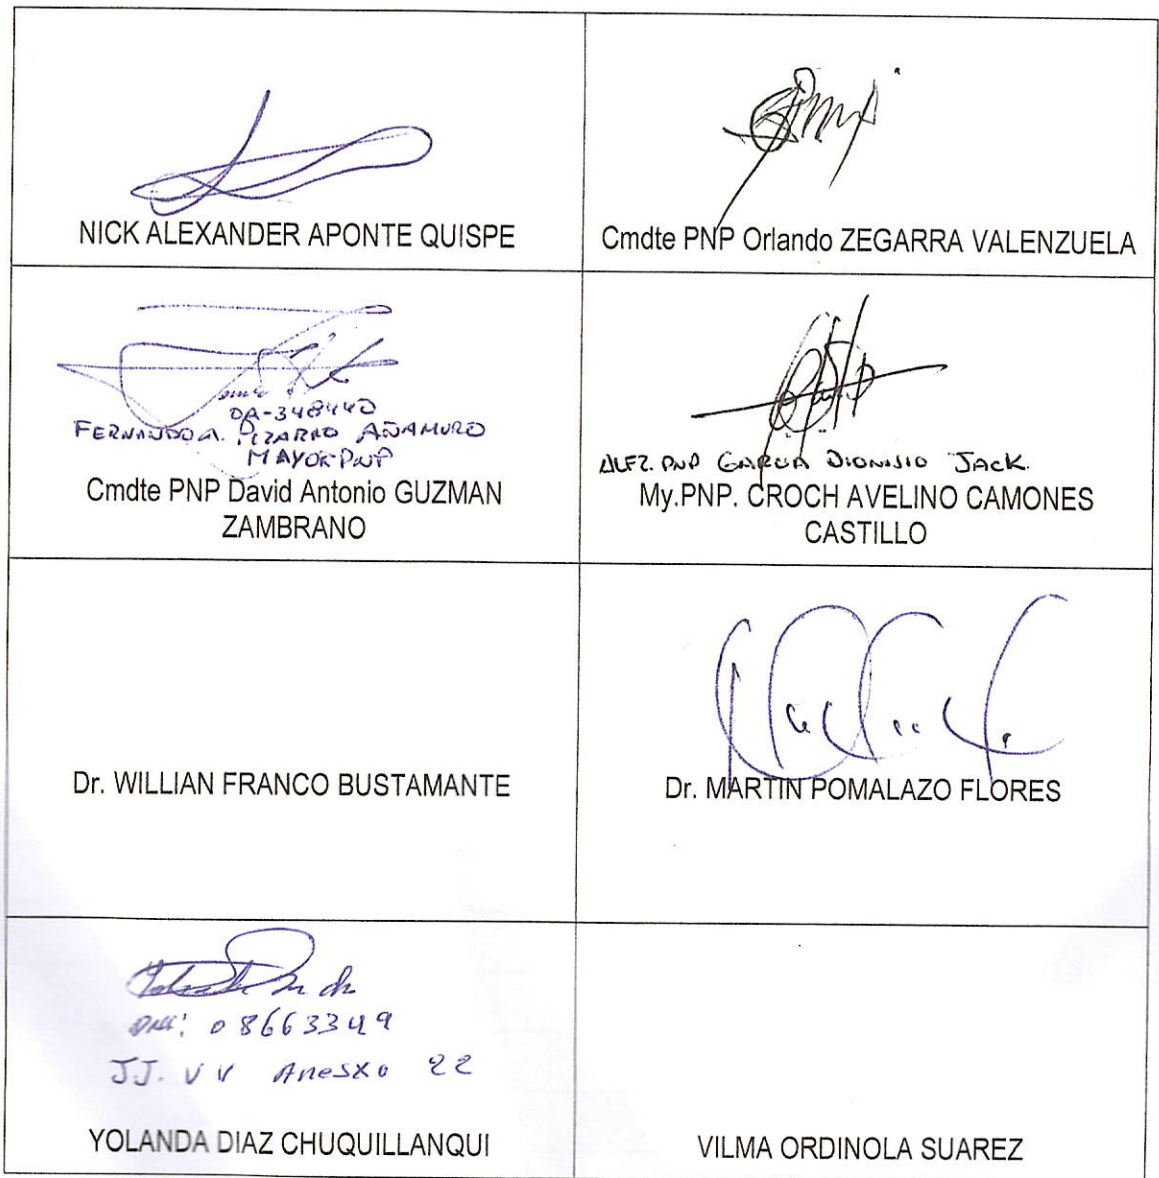 NICK ALEXANDER APONTE QUISPE
Cmdte PNP Orlando ZEGARRA VALENZUELA
OA-348440
FERNANDO A. PIZARRO AÑAMURO
MAYOR PNP
Cmdte PNP David Antonio GUZMAN
ZAMBRANO
ALFZ. PNP GARCIA DIONISIO JACK
My.PNP. CROCH AVELINO CAMONES
CASTILLO
Dr. WILLIAN FRANCO BUSTAMANTE
Dr. MARTIN POMALAZO FLORES
DNI: 08663349
JJ. VV Anesxo 22
YOLANDA DIAZ CHUQUILLANQUI
VILMA ORDINOLA SUAREZ